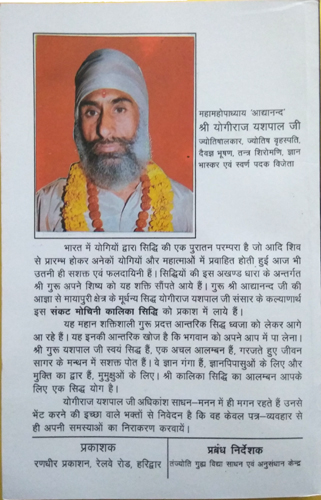 महामहोपाध्याय 'आद्यानन्द'
श्री योगीराज यशपाल जी
ज्योतिषालंकार, ज्योतिष वृहस्पति,
दैवज्ञ भूषण, तन्त्र शिरोमणि, ज्ञान
भास्कर एवं स्वर्ण पदक विजेता
भारत में योगियों द्वारा सिद्धि की एक पुरातन परम्परा है जो आदि शिव
से प्रारम्भ होकर अनेकों योगियों और महात्माओं में प्रवाहित होती हुई आज भी
उतनी ही सशक्त एवं फलदायिनी हैं। सिद्धियों की इस अखण्ड धारा के अन्तर्गत
श्री गुरू अपने शिष्य को यह शक्ति सौंपते आये हैं। गुरू श्री आद्यानन्द जी की
आज्ञा से मायापुरी क्षेत्र के मूर्धन्य सिद्ध योगीराज यशपाल जी संसार के कल्याणार्थ
इस संकट मोचिनी कालिका सिद्धि को प्रकाश में लाये हैं।
यह महान शक्तिशाली गुरू प्रदत्त आन्तरिक सिद्ध ध्वजा को लेकर आगे
आ रहे हैं। यह इनकी आन्तरिक खोज है कि भगवान को अपने आप में पा लेना।
श्री गुरू यशपाल जी स्वयं सिद्ध हैं, एक अचल आलम्बन हैं, गरजते हुए जीवन
सागर के मन्थन में सशक्त पोत हैं। वे ज्ञान गंगा हैं, ज्ञानपिपासुओं के लिए और
मुक्ति का द्वार हैं, मुमुक्षुओं के लिए। श्री कालिका सिद्धि का आलम्बन आपके
लिए एक सिद्ध योग है।
योगीराज यशपाल जी अधिकांश साधन–मनन में ही मगन रहते हैं उनसे
भेंट करने की इच्छा वाले भक्तों से निवेदन है कि वह केवल पत्र–व्यवहार से
ही अपनी समस्याओं का निराकरण करवायें।
प्रकाशक
रणधीर प्रकाशन, रेलवे रोड, हरिद्वार
प्रबंध निर्देशक
तंज्योति गुह्य विद्या साधन एवं अनुसंधान केन्द्र